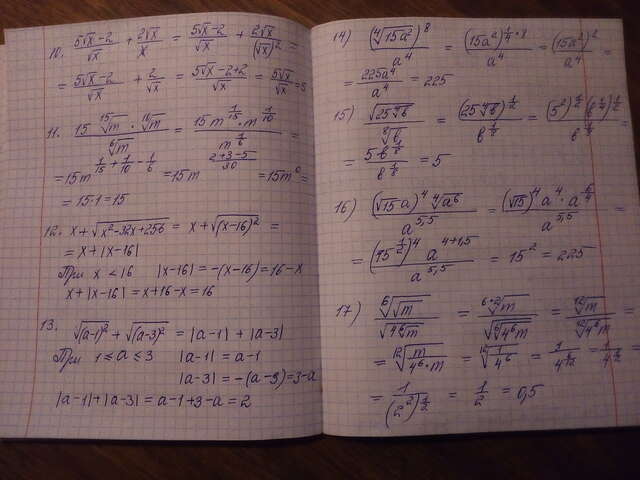 10. (5√x-2)/√x + 2√x/x = (5√x-2)/√x + 2√x/(√x)² =
= (5√x-2)/√x + 2/√x = (5√x-2+2)/√x = 5√x/√x = 5
11. (15 ¹⁵√m · ¹⁰√m)/⁶√m = (15m^(1/15) · m^(1/10))/m^(1/6) =
= 15m^(1/15+1/10-1/6) = 15m^((2+3-5)/30) = 15m⁰ =
= 15·1 = 15
12. x+√(x²-32x+256) = x+√(x-16)² =
= x+|x-16|
При x < 16 |x-16| = -(x-16) = 16-x
x+|x-16| = x+16-x = 16
13. √(a-1)² + √(a-3)² = |a-1| + |a-3|
При 1 ≤ a ≤ 3 |a-1| = a-1
|a-3| = -(a-3) = 3-a
|a-1|+|a-3| = a-1+3-a = 2
14) (⁴√(15a²))⁸/a⁴ = (15a²)^(1/4·8)/a⁴ = (15a²)²/a⁴ =
= 225a⁴/a⁴ = 225
15) √(25⁴√b)/⁸√b = (25⁴√b)^(1/2)/b^(1/8) = (5²)^(1/2)(b^(1/4))^(1/2)/b^(1/8) =
= 5b^(1/8)/b^(1/8) = 5
16) (√15a)⁴ ⁴√a⁶/a^5,5 = (√15)⁴a⁴·a^(6/4)/a^5,5 =
= (15^(1/2))⁴ a^(4+1,5)/a^5,5 = 15² = 225
17) ⁶√(√m)/√(4⁶√m) = ⁶·²√m/√(⁶√(4⁶m)) = ¹²√m/¹²√(4⁶m) =
= ¹²√(m/(4⁶·m)) = ¹²√(1/4⁶) = 1/4^(6/12) = 1/4^(1/2) =
= 1/(2²)^(1/2) = 1/2 = 0,5